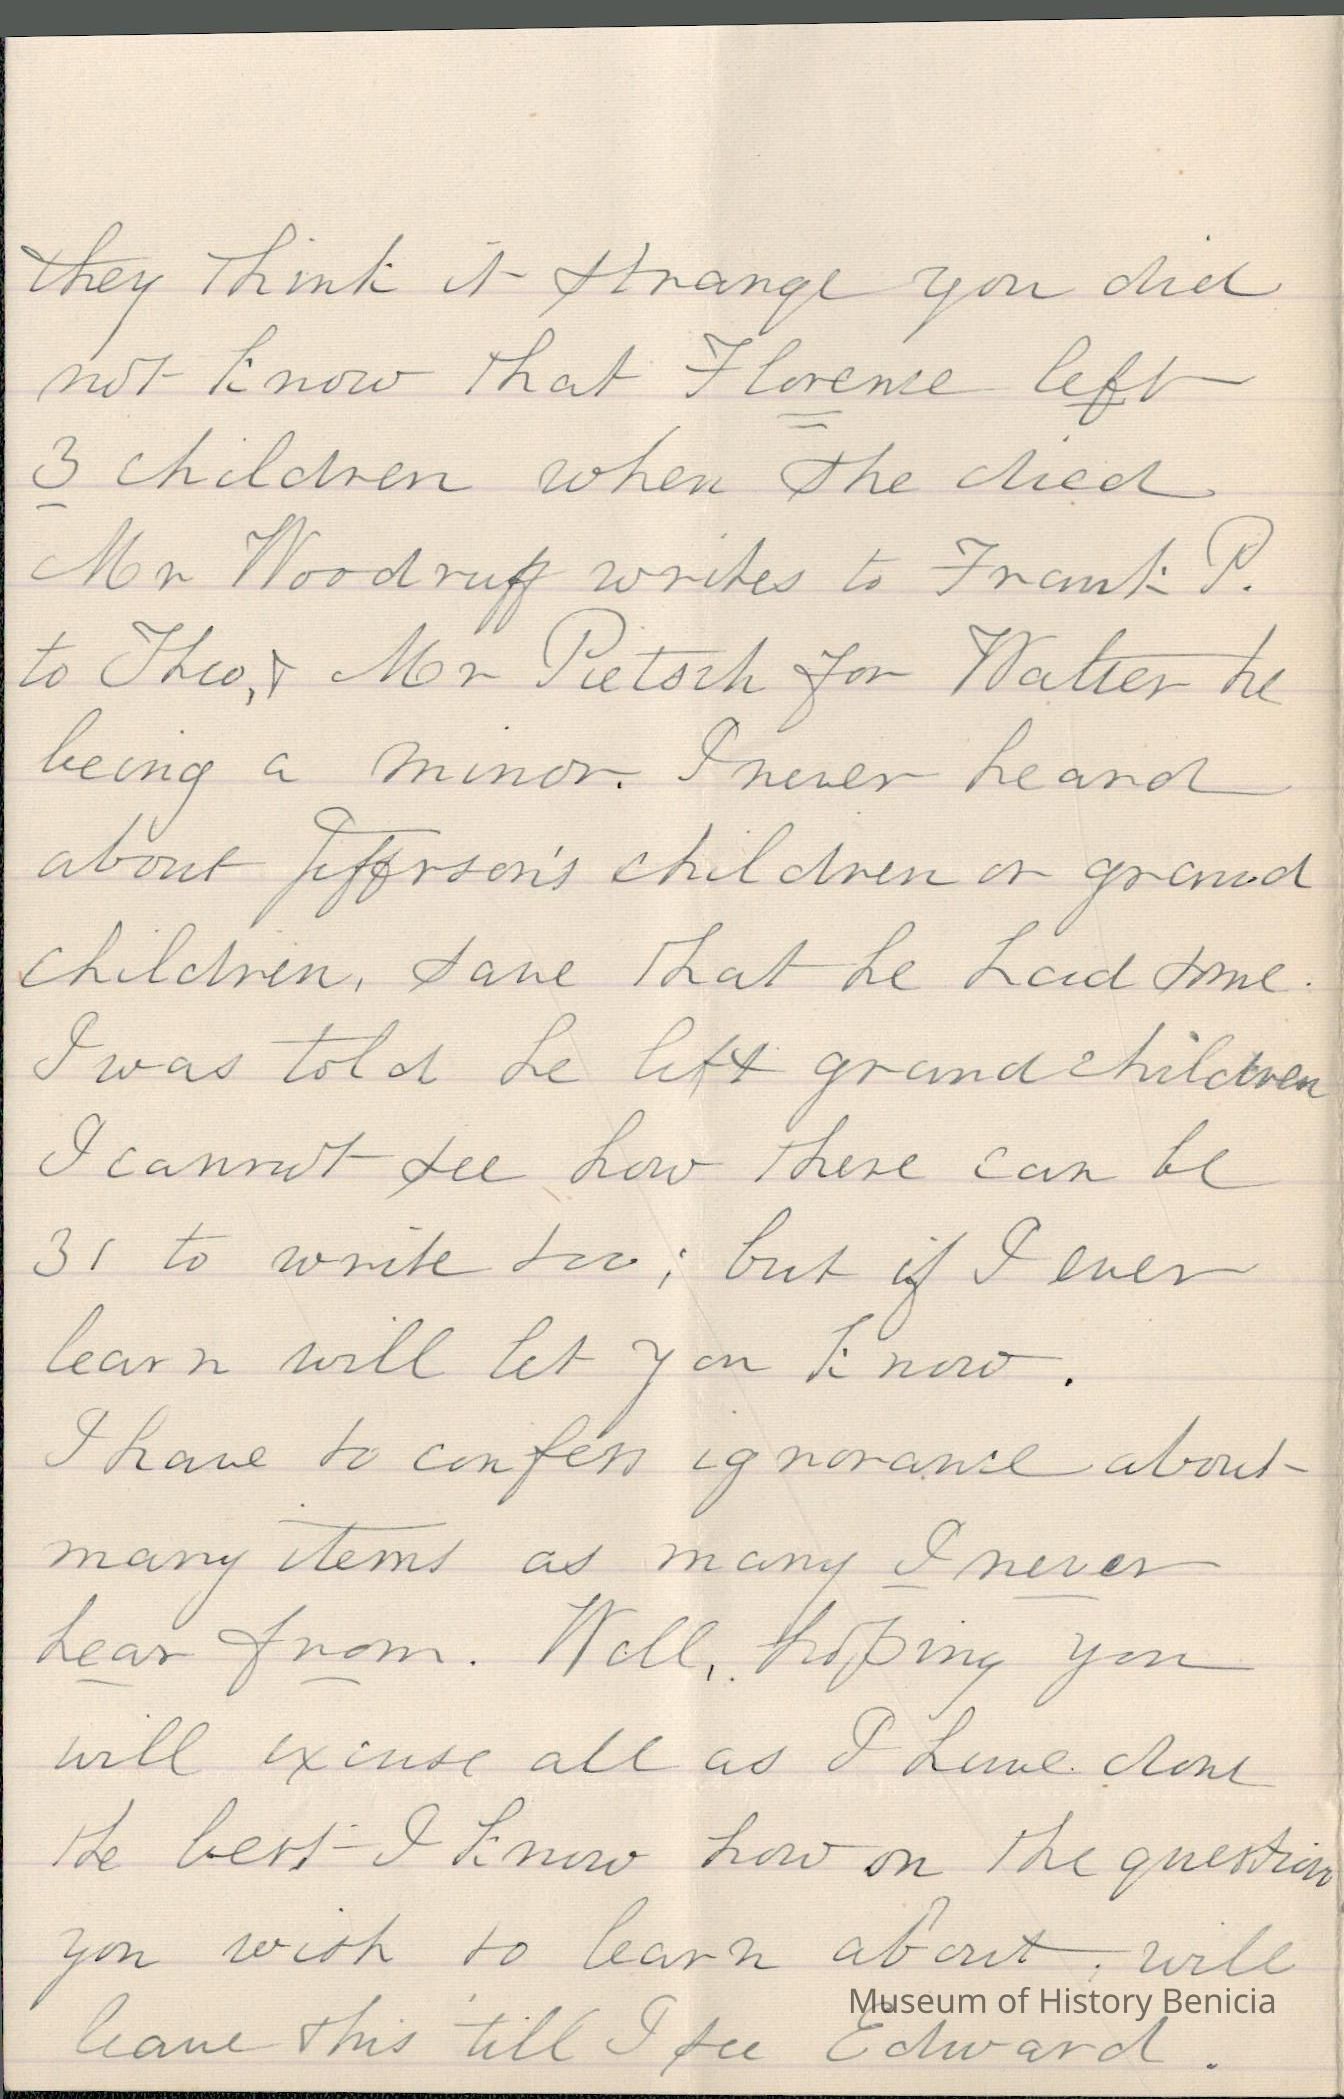 they think it strange you did
not know that Florence left
3 children when she died
Mr Woodruff writes to Frank P.
to Theo, & Mr Pietsch for Walter he
being a minor. I never heard
about Jefferson's children or grand
children, save that he had some.
I was told he left grandchildren
I cannot see how there can be
31 to write too; but if I ever
learn will let you know.
I have to confess ignorance about
many items as many I never
hear from. Well, hoping you
will excuse all as I have done
the best I know how on the question
you wish to learn about, will
Museum of History Benicia
leave this till I see Edward.